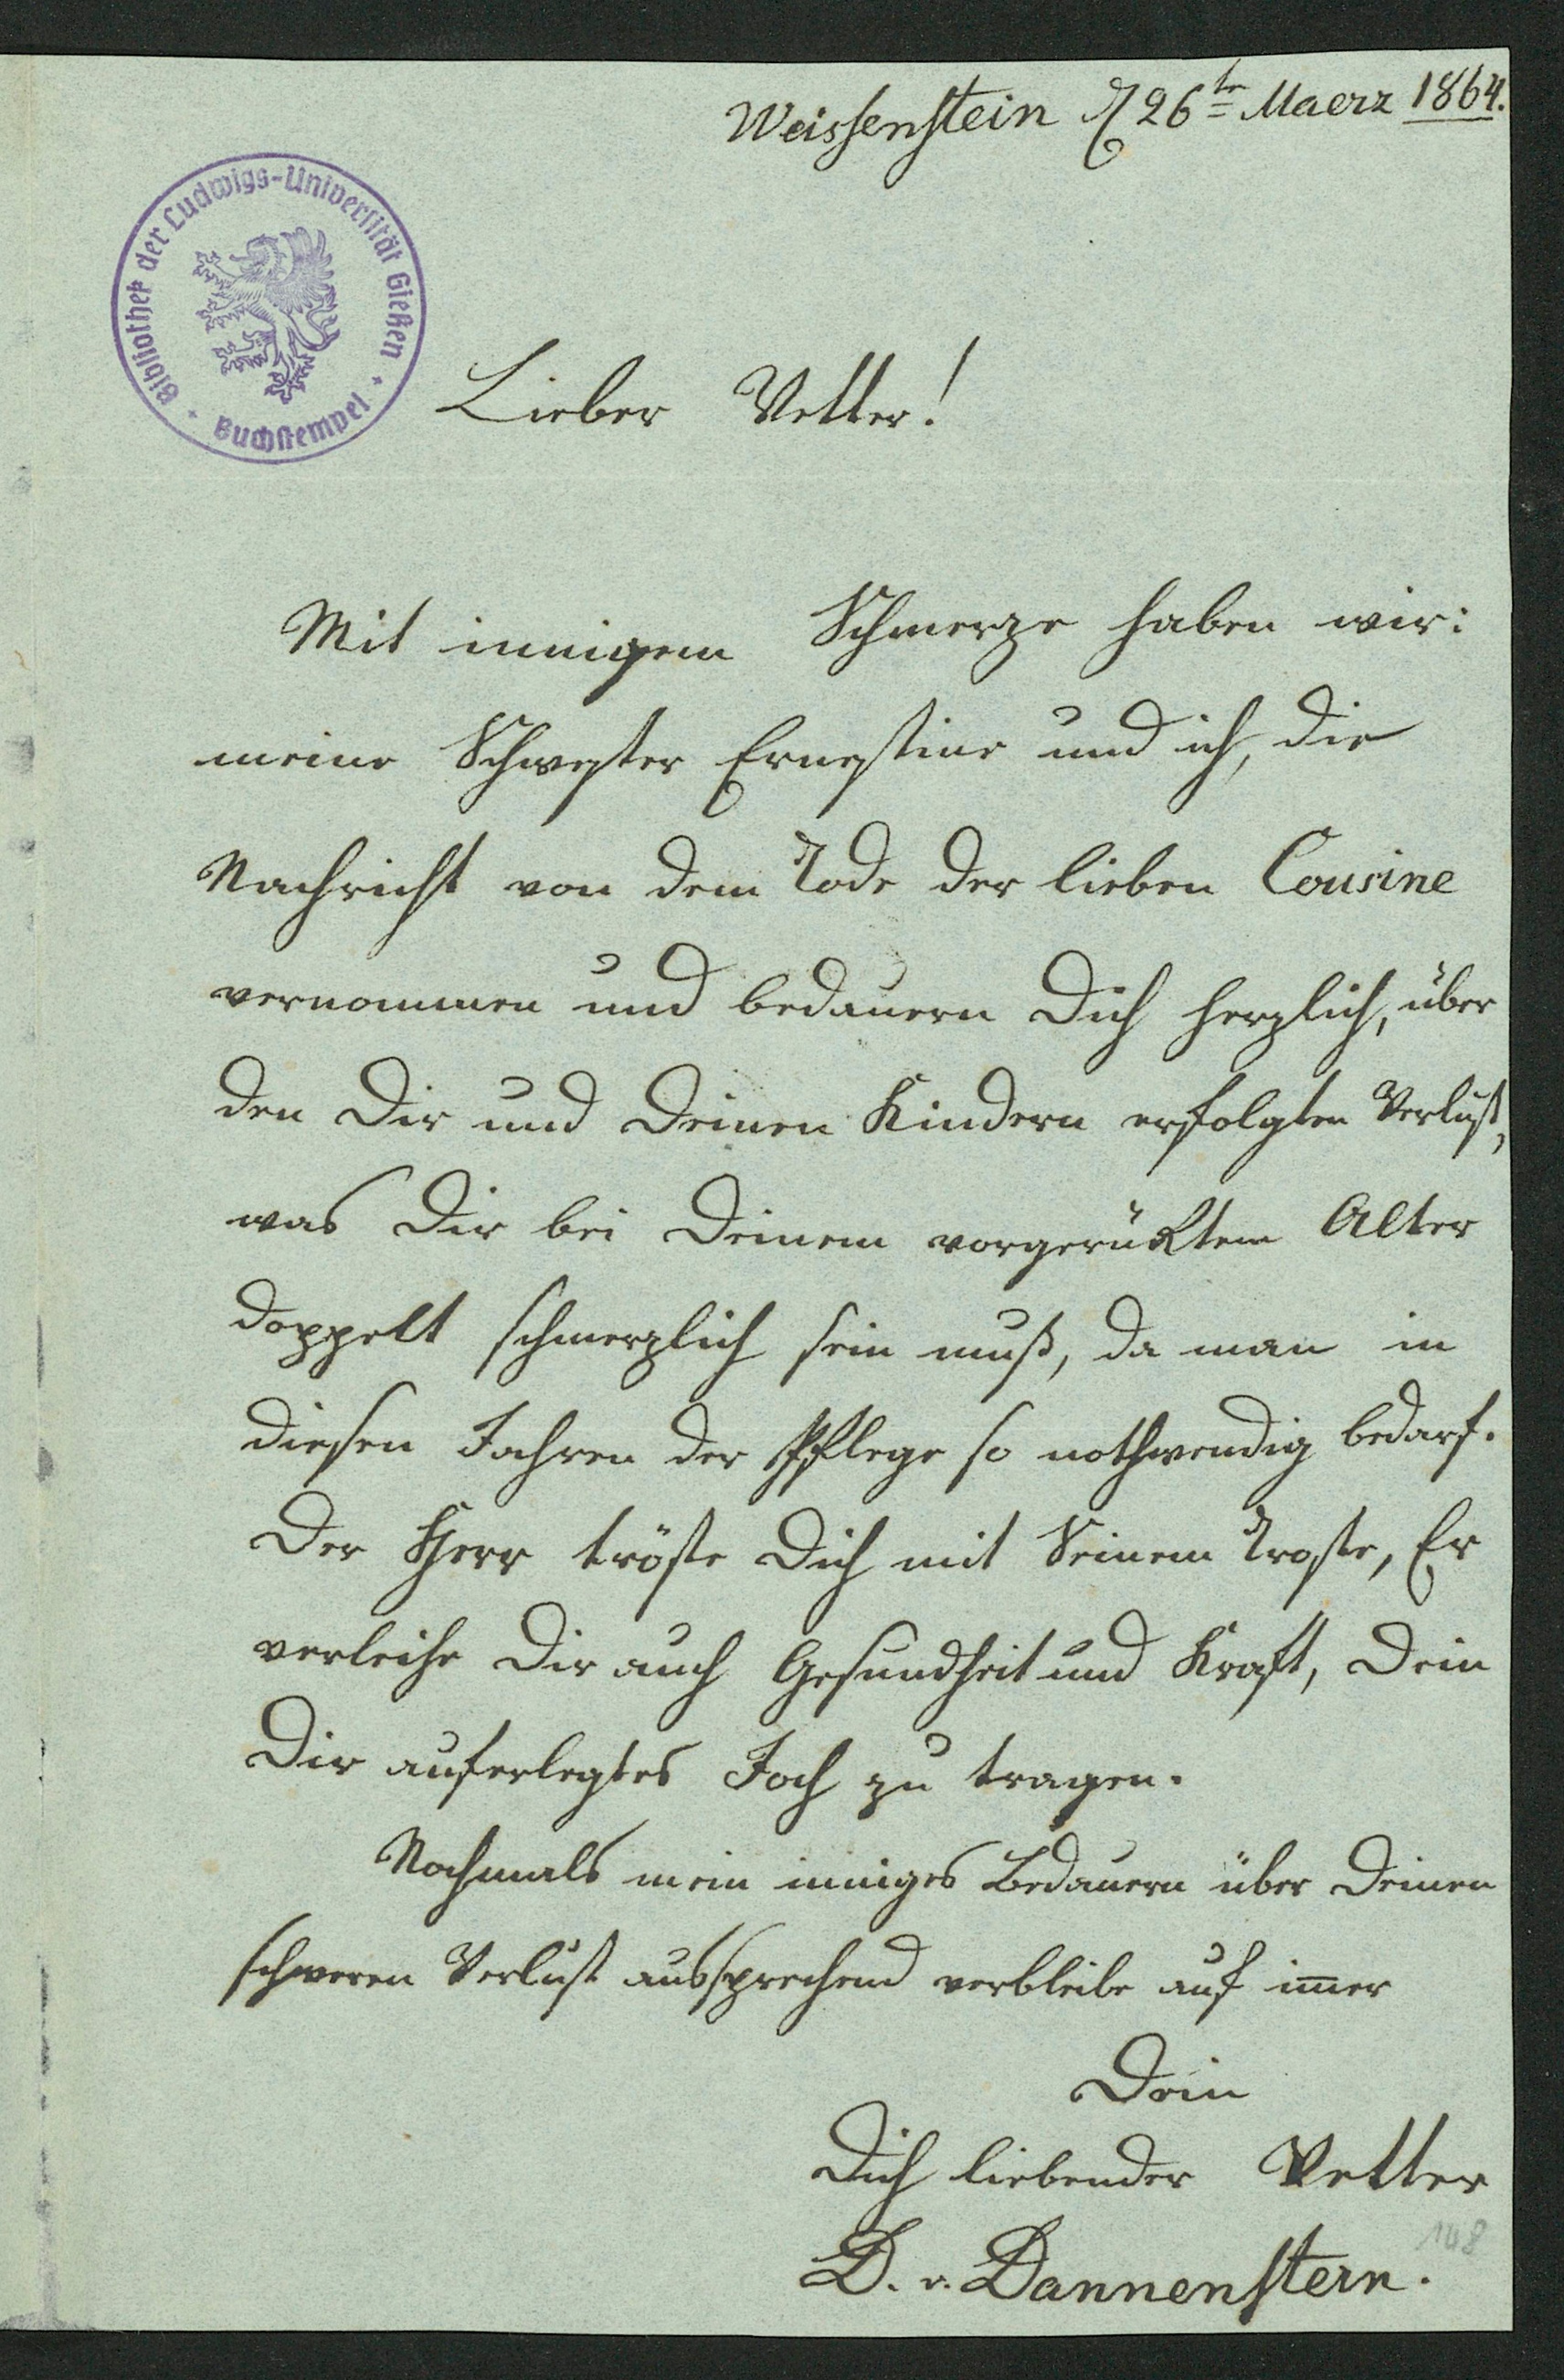 Weissenstein d 26ten Maerz 1864.
Bibliothek der Ludwigs-Universität Gießen
Buchstempel
Lieber Vetter!
Mit innigem Schmerze haben wir:
meine Schwester Ernestine und ich, die
Nachricht von dem Tode der lieben Cousine
vernommen und bedauern Dich herzlich, über
den Dir und Deinen Kindern erfolgten Verlust,
was Dir bei Deinem vorgerükten Alter
doppelt schmerzlich sein muß, da man in
diesen Jahren der Pflege so nothwendig bedarf.
Der Herr tröste Dich mit Seinem Troste, Er
verleihe Dir auch Gesundheit und Kraft, Dein
Dir auferlegtes Joch zu tragen.
Nochmals mein inniges Bedauern über Deinen
schweren Verlust aussprechend verbleibe auf im̄er
Dein
Dich liebender Vetter
D. v. Dannenstern.
148